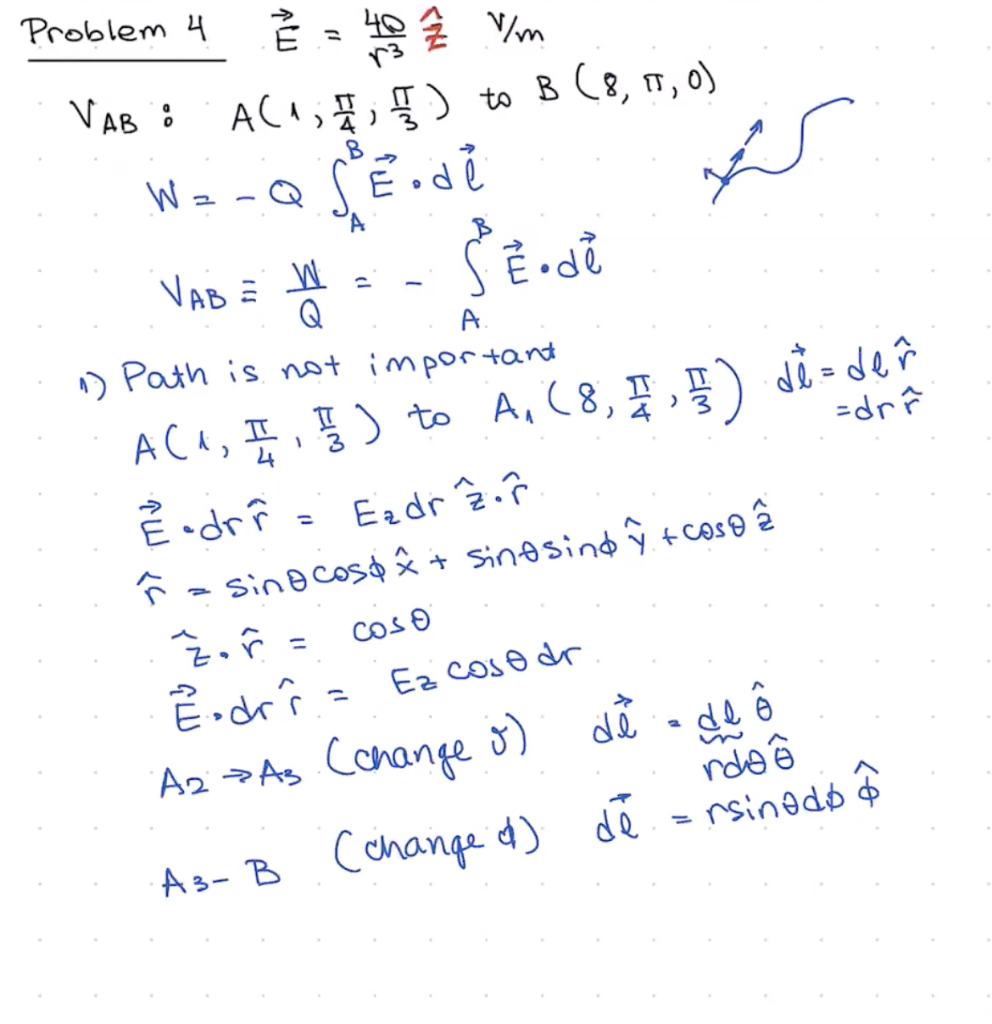 Problem 4 E⃗ = 40/r³ ẑ V/m
V_AB : A(1, π/4, π/3) to B (8, π, 0)
W = - Q ∫_A^B E⃗ · dl⃗
V_AB ≡ W/Q = - ∫_A^B E⃗ · dl⃗
1) Path is not important
A(1, π/4, π/3) to A₁ (8, π/4, π/3) dl⃗ = dl r̂
= dr r̂
E⃗ · dr r̂ = E_z dr ẑ · r̂
r̂ = sinθ cosφ x̂ + sinθ sinφ ŷ + cosθ ẑ
ẑ · r̂ = cosθ
E⃗ · dr r̂ = E_z cosθ dr
A₂ → A₃ (change θ) dl⃗ = dl θ̂
rdθ θ̂
A₃ - B (change φ) dl⃗ = r sinθ dφ φ̂